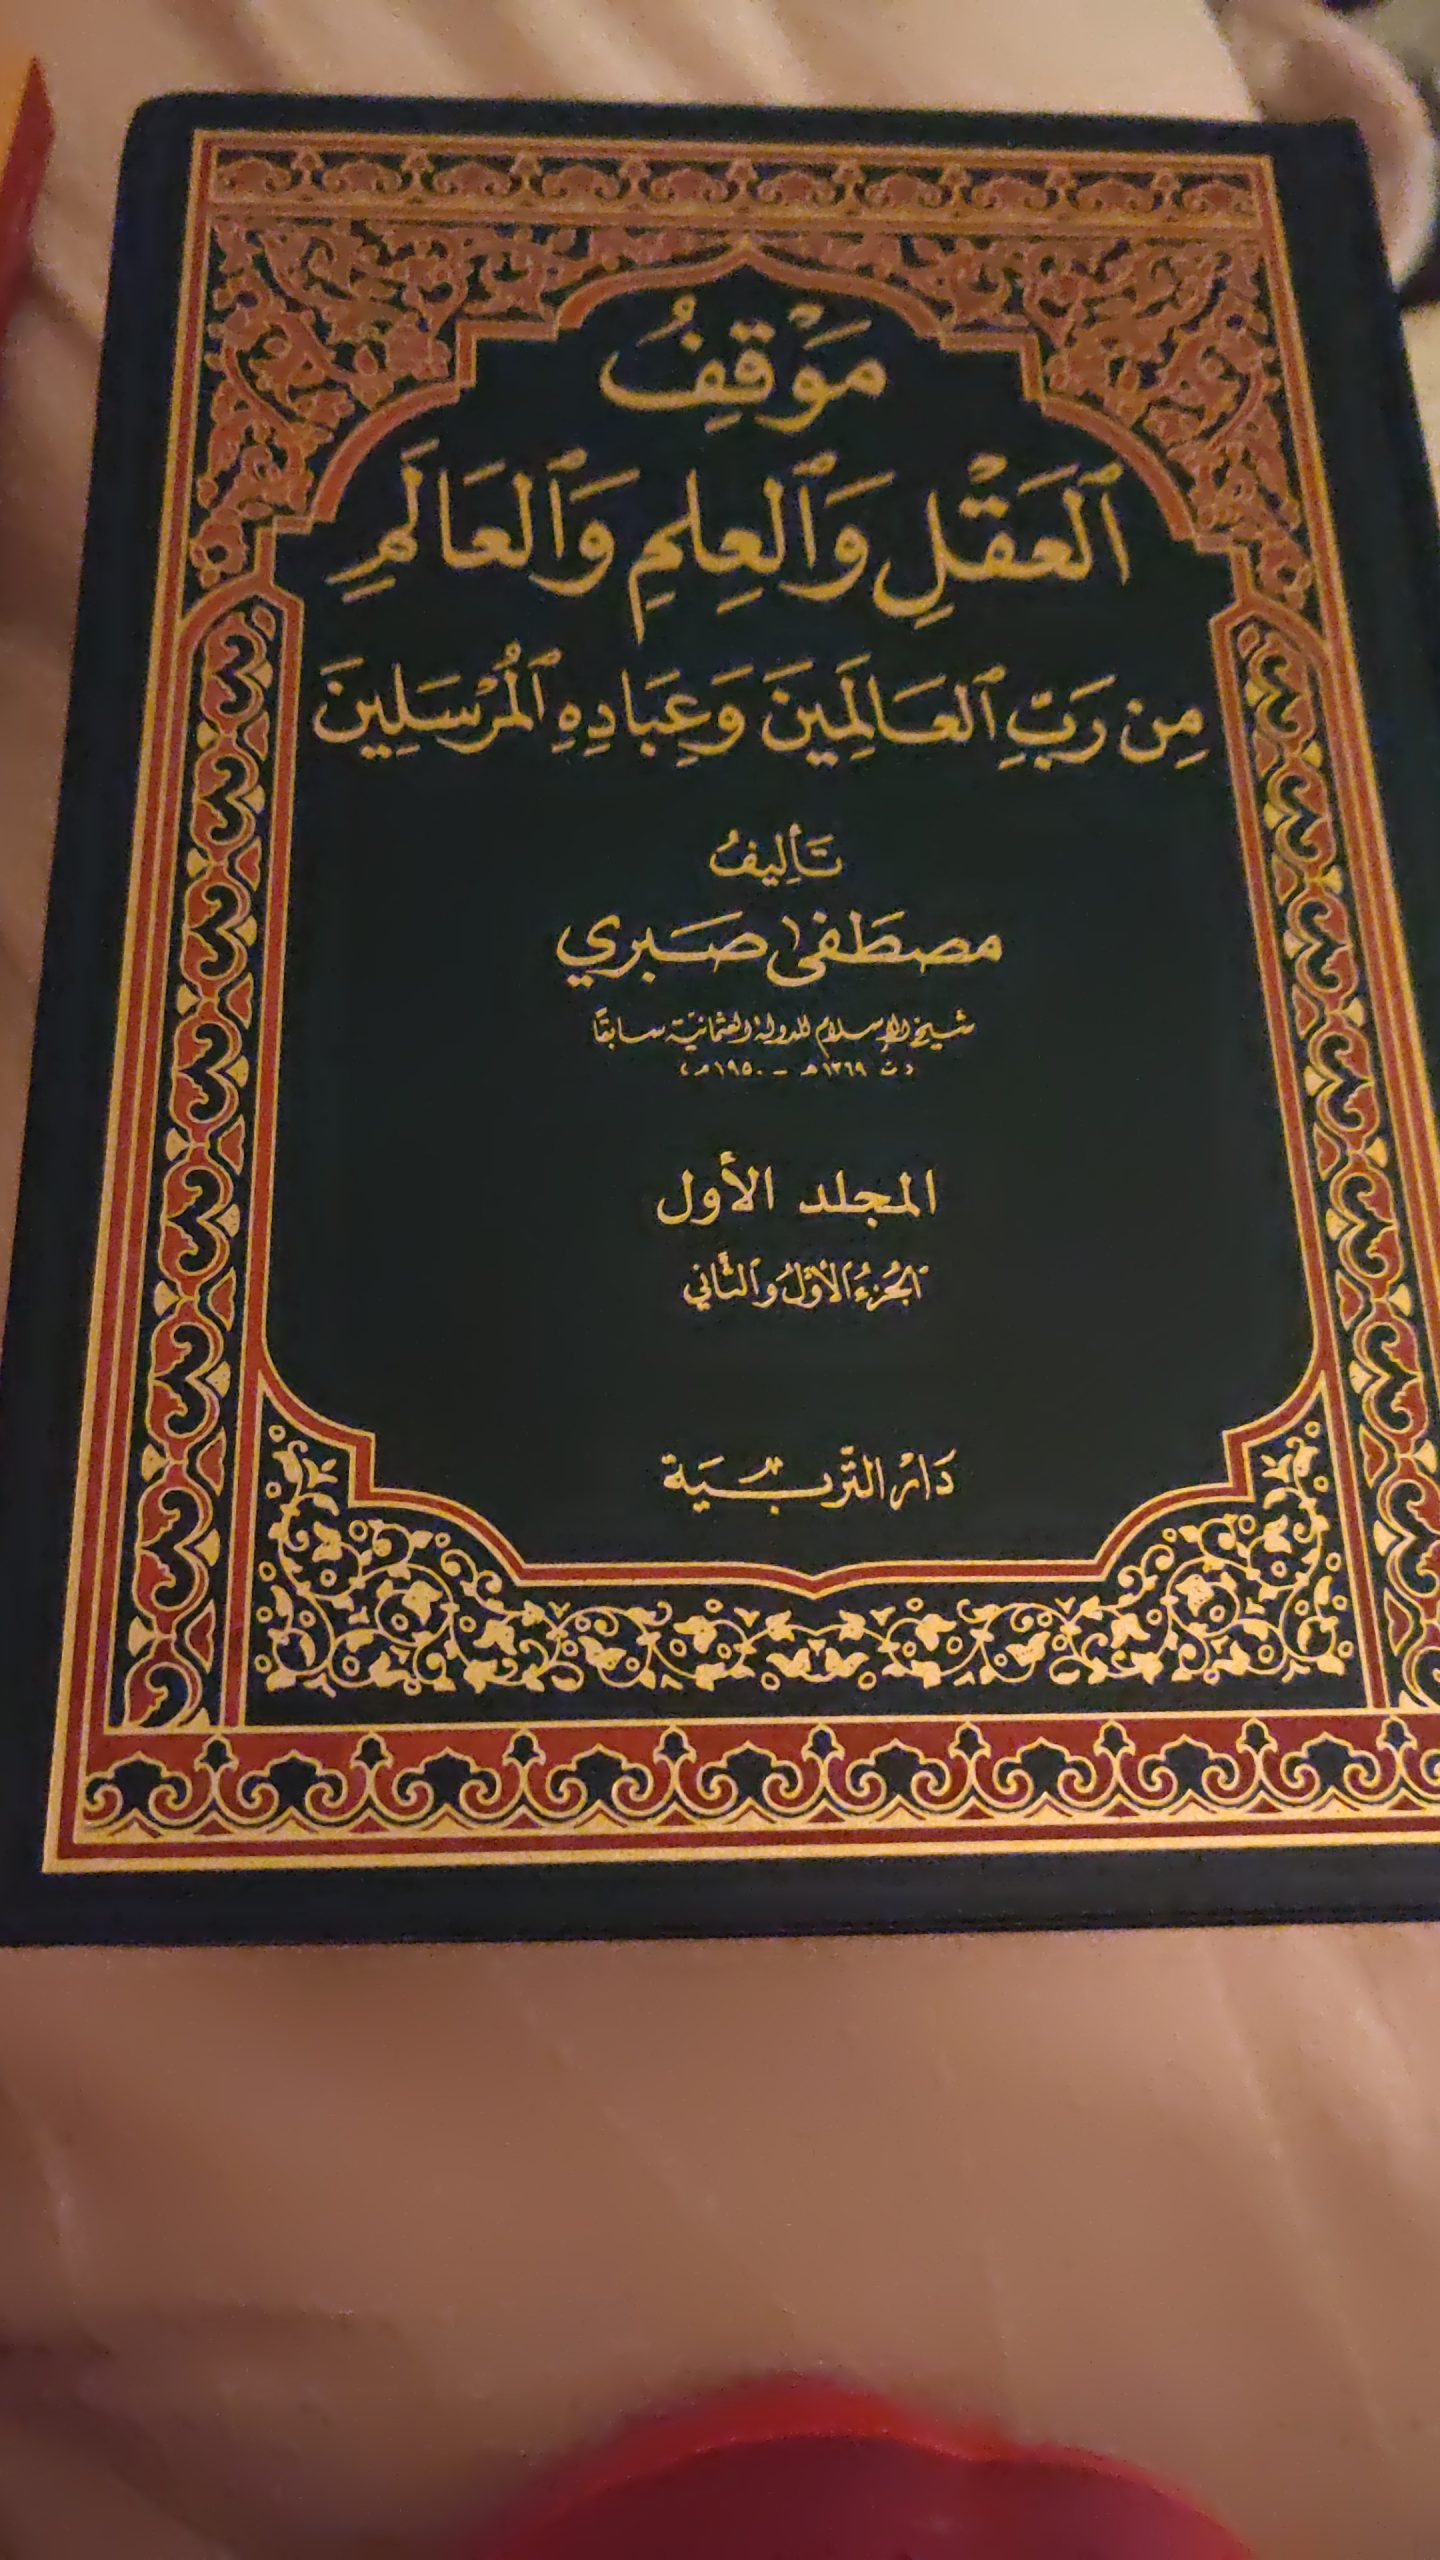 مَوْقِفُ
ٱلْعَقْلِ وَٱلْعِلمِ وَٱلْعَالَمِ
مِن رَبِّ ٱلْعَالَمِينَ وَعِبَادِهِ ٱلْمُرْسَلِينَ
تَأليفُ
مصطَفىٰ صَبري
شيخ الإسلام للدولة العثمانيّة سابقًا
(ت ١٣٦٩هـ - ١٩٥٠م)
المجلد الأول
ٱلْجُزءُ ٱلأوّلُ وَٱلثَّاني
دَارُ التّربــيَة